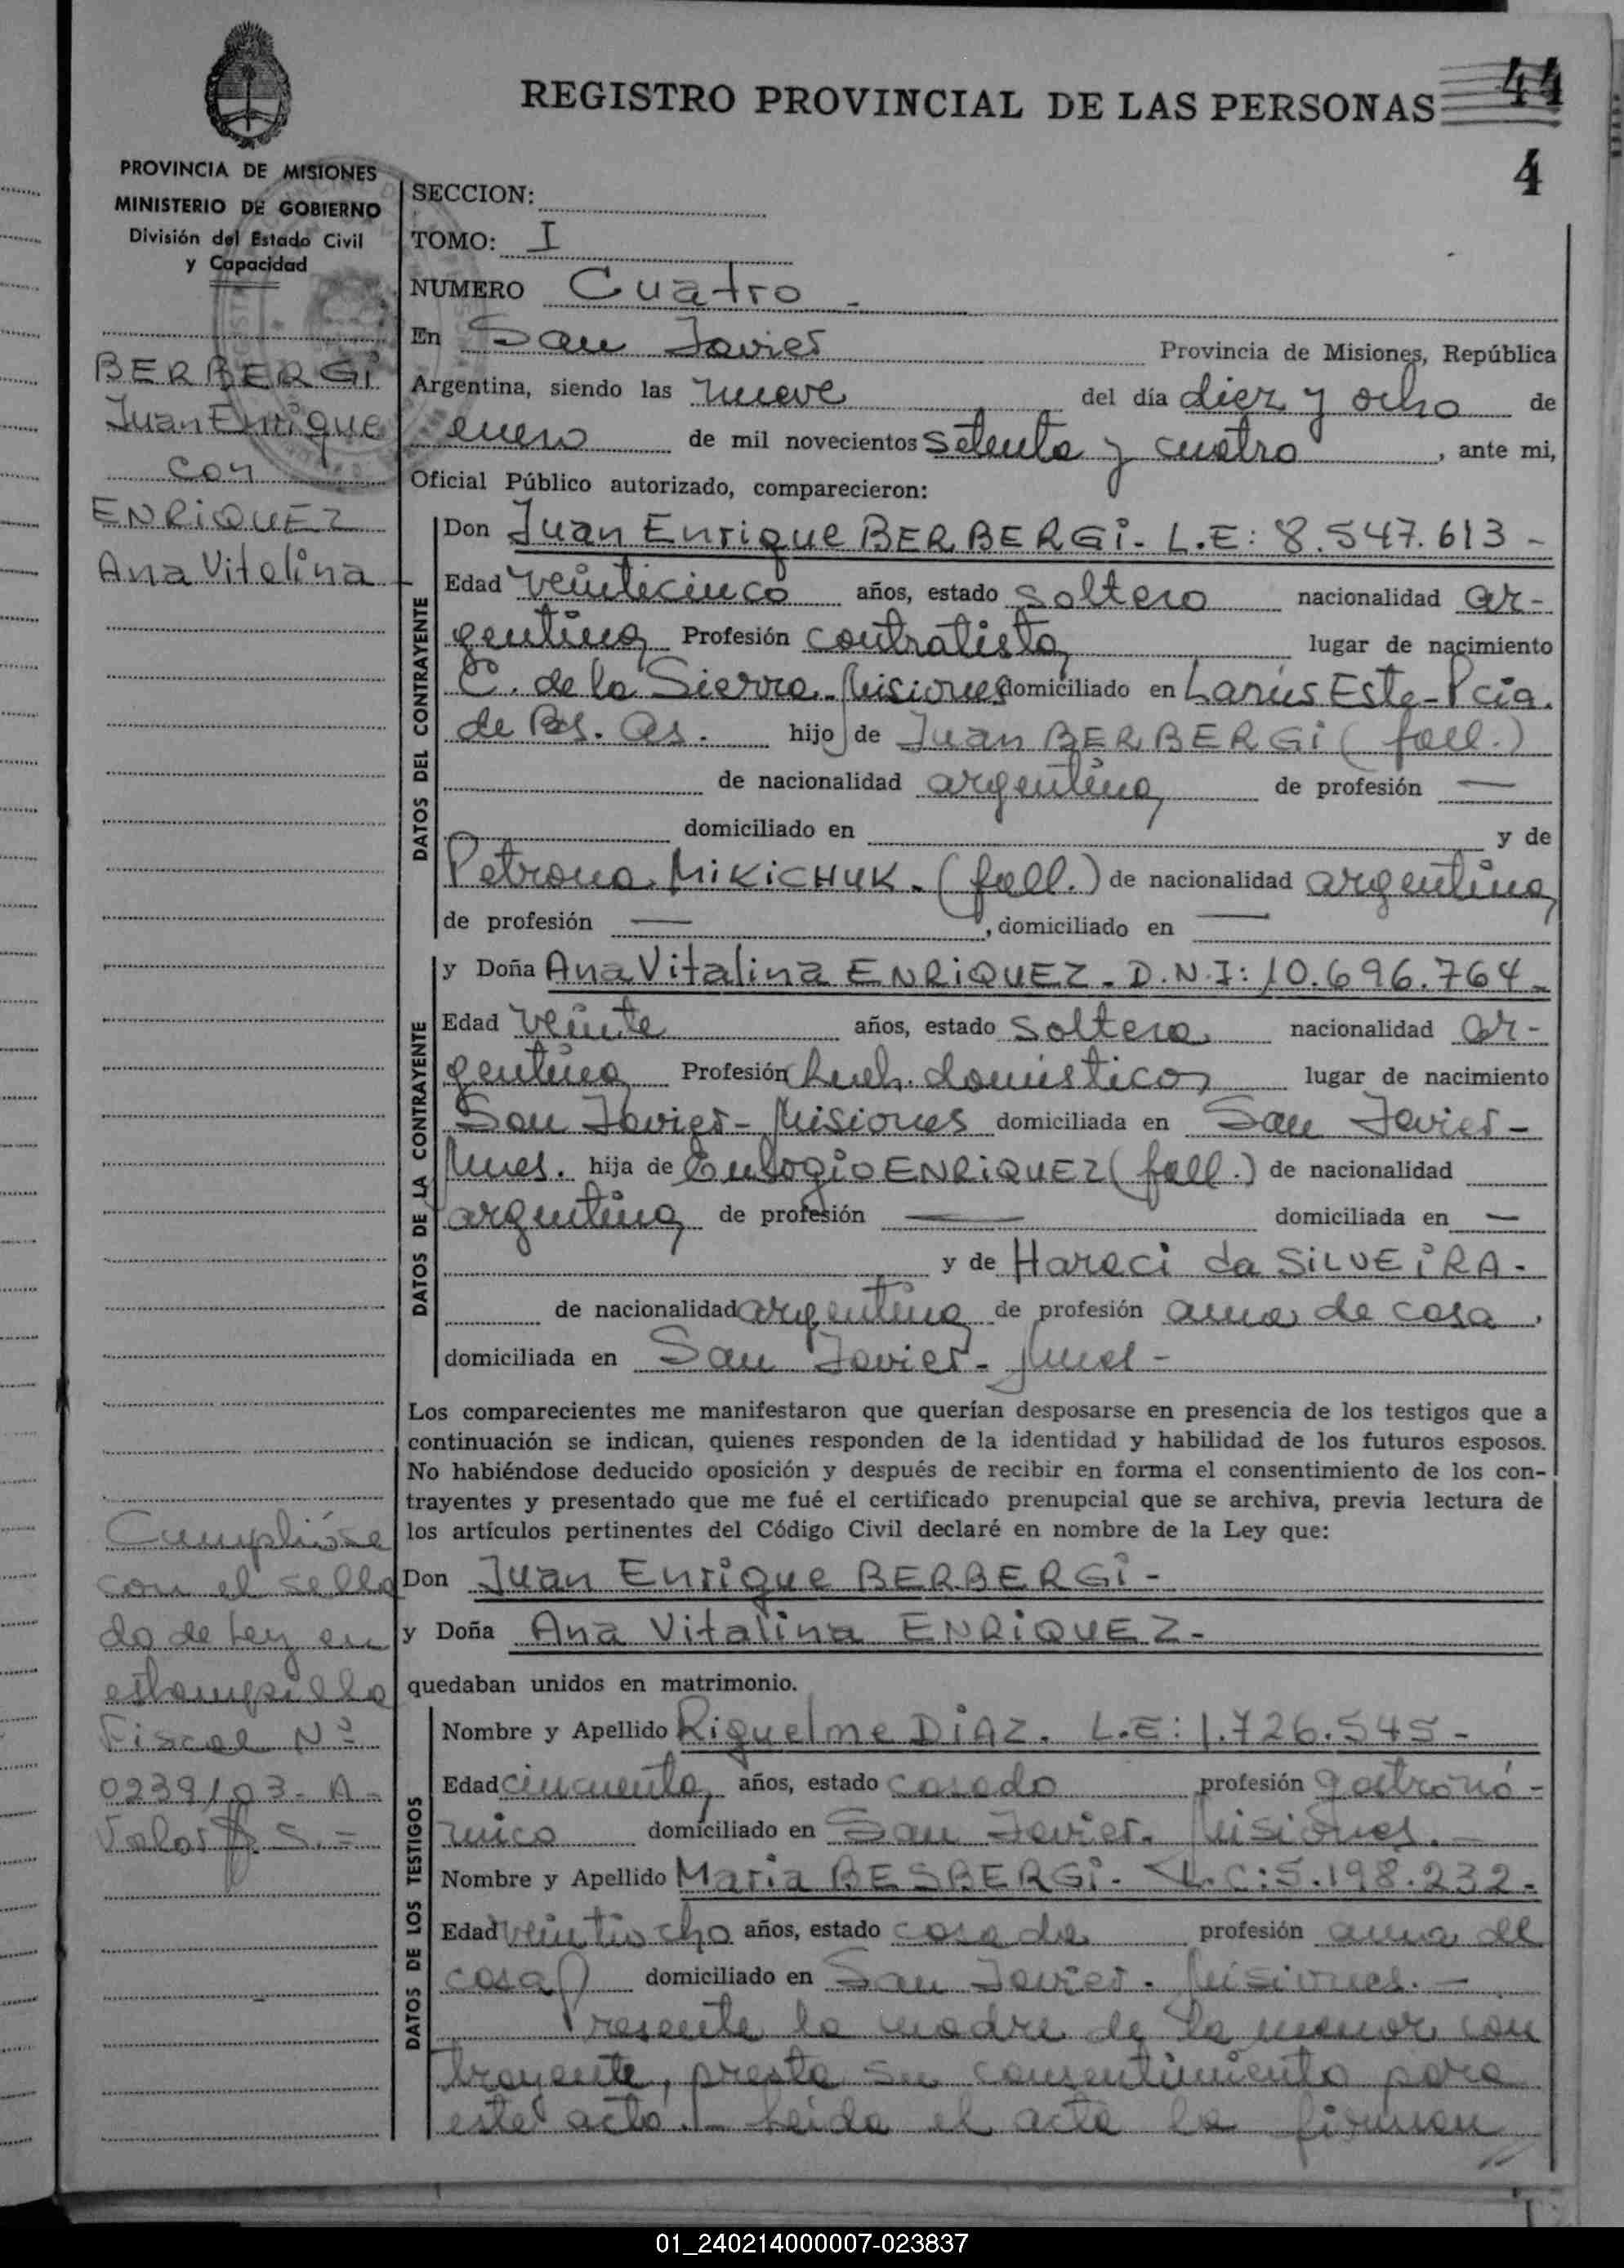 REGISTRO PROVINCIAL DE LAS PERSONAS 44
4
PROVINCIA DE MISIONES
MINISTERIO DE GOBIERNO
División del Estado Civil
y Capacidad
BERBERGi
Juan Enrique
con
ENRiQUEZ
Ana Vitalina
Cumplióse
con el sella
do de Ley en
estampilla
Fiscal Nº
0239103-A-
Valor $ 5.=
SECCION:
TOMO: I
NUMERO Cuatro -
En San Javier Provincia de Misiones, República
Argentina, siendo las nueve del día diez y ocho de
enero de mil novecientos setenta y cuatro, ante mi,
Oficial Público autorizado, comparecieron:
DATOS DEL CONTRAYENTE
Don Juan Enrique BERBERGi - L.E: 8.547.613 -
Edad veinticinco años, estado soltero nacionalidad ar-
gentina Profesión contratista lugar de nacimiento
C. de la Sierra - Misiones domiciliado en Lanús Este - Pcia.
de Bs. As. hijo de Juan BERBERGi (fall.)
de nacionalidad argentina de profesión —
domiciliado en y de
Petrona MiKiCHUK - (fall.) de nacionalidad argentina
de profesión — , domiciliado en —
DATOS DE LA CONTRAYENTE
y Doña Ana Vitalina ENRiQUEZ - D.N.I: 10.696.764 -
Edad veinte años, estado soltera nacionalidad ar-
gentina Profesión Queh. domésticos lugar de nacimiento
San Javier - Misiones domiciliada en San Javier -
Mnes. hija de Eulogio ENRiQUEZ (fall.) de nacionalidad
argentina de profesión — domiciliada en —
y de Hareci da SiLVEiRA -
de nacionalidad argentina de profesión ama de casa,
domiciliada en San Javier - Mnes -
Los comparecientes me manifestaron que querían desposarse en presencia de los testigos que a
continuación se indican, quienes responden de la identidad y habilidad de los futuros esposos.
No habiéndose deducido oposición y después de recibir en forma el consentimiento de los con-
trayentes y presentado que me fué el certificado prenupcial que se archiva, previa lectura de
los artículos pertinentes del Código Civil declaré en nombre de la Ley que:
Don Juan Enrique BERBERGi -
y Doña Ana Vitalina ENRiQUEZ -
quedaban unidos en matrimonio.
DATOS DE LOS TESTIGOS
Nombre y Apellido Riquelme DiAZ. L.E: 1.726.545 -
Edad cincuenta años, estado casado profesión gastronó-
mico domiciliado en San Javier. Misiones. -
Nombre y Apellido Maria BESBERGi - L.C: 5.198.232 -
Edad veintiocho años, estado casada profesión ama de
casa domiciliado en San Javier - Misiones. -
Presente la madre de la menor con
trayente, presta su consentimiento para
este acto. - Leida el acta la firman
01_240214000007-023837